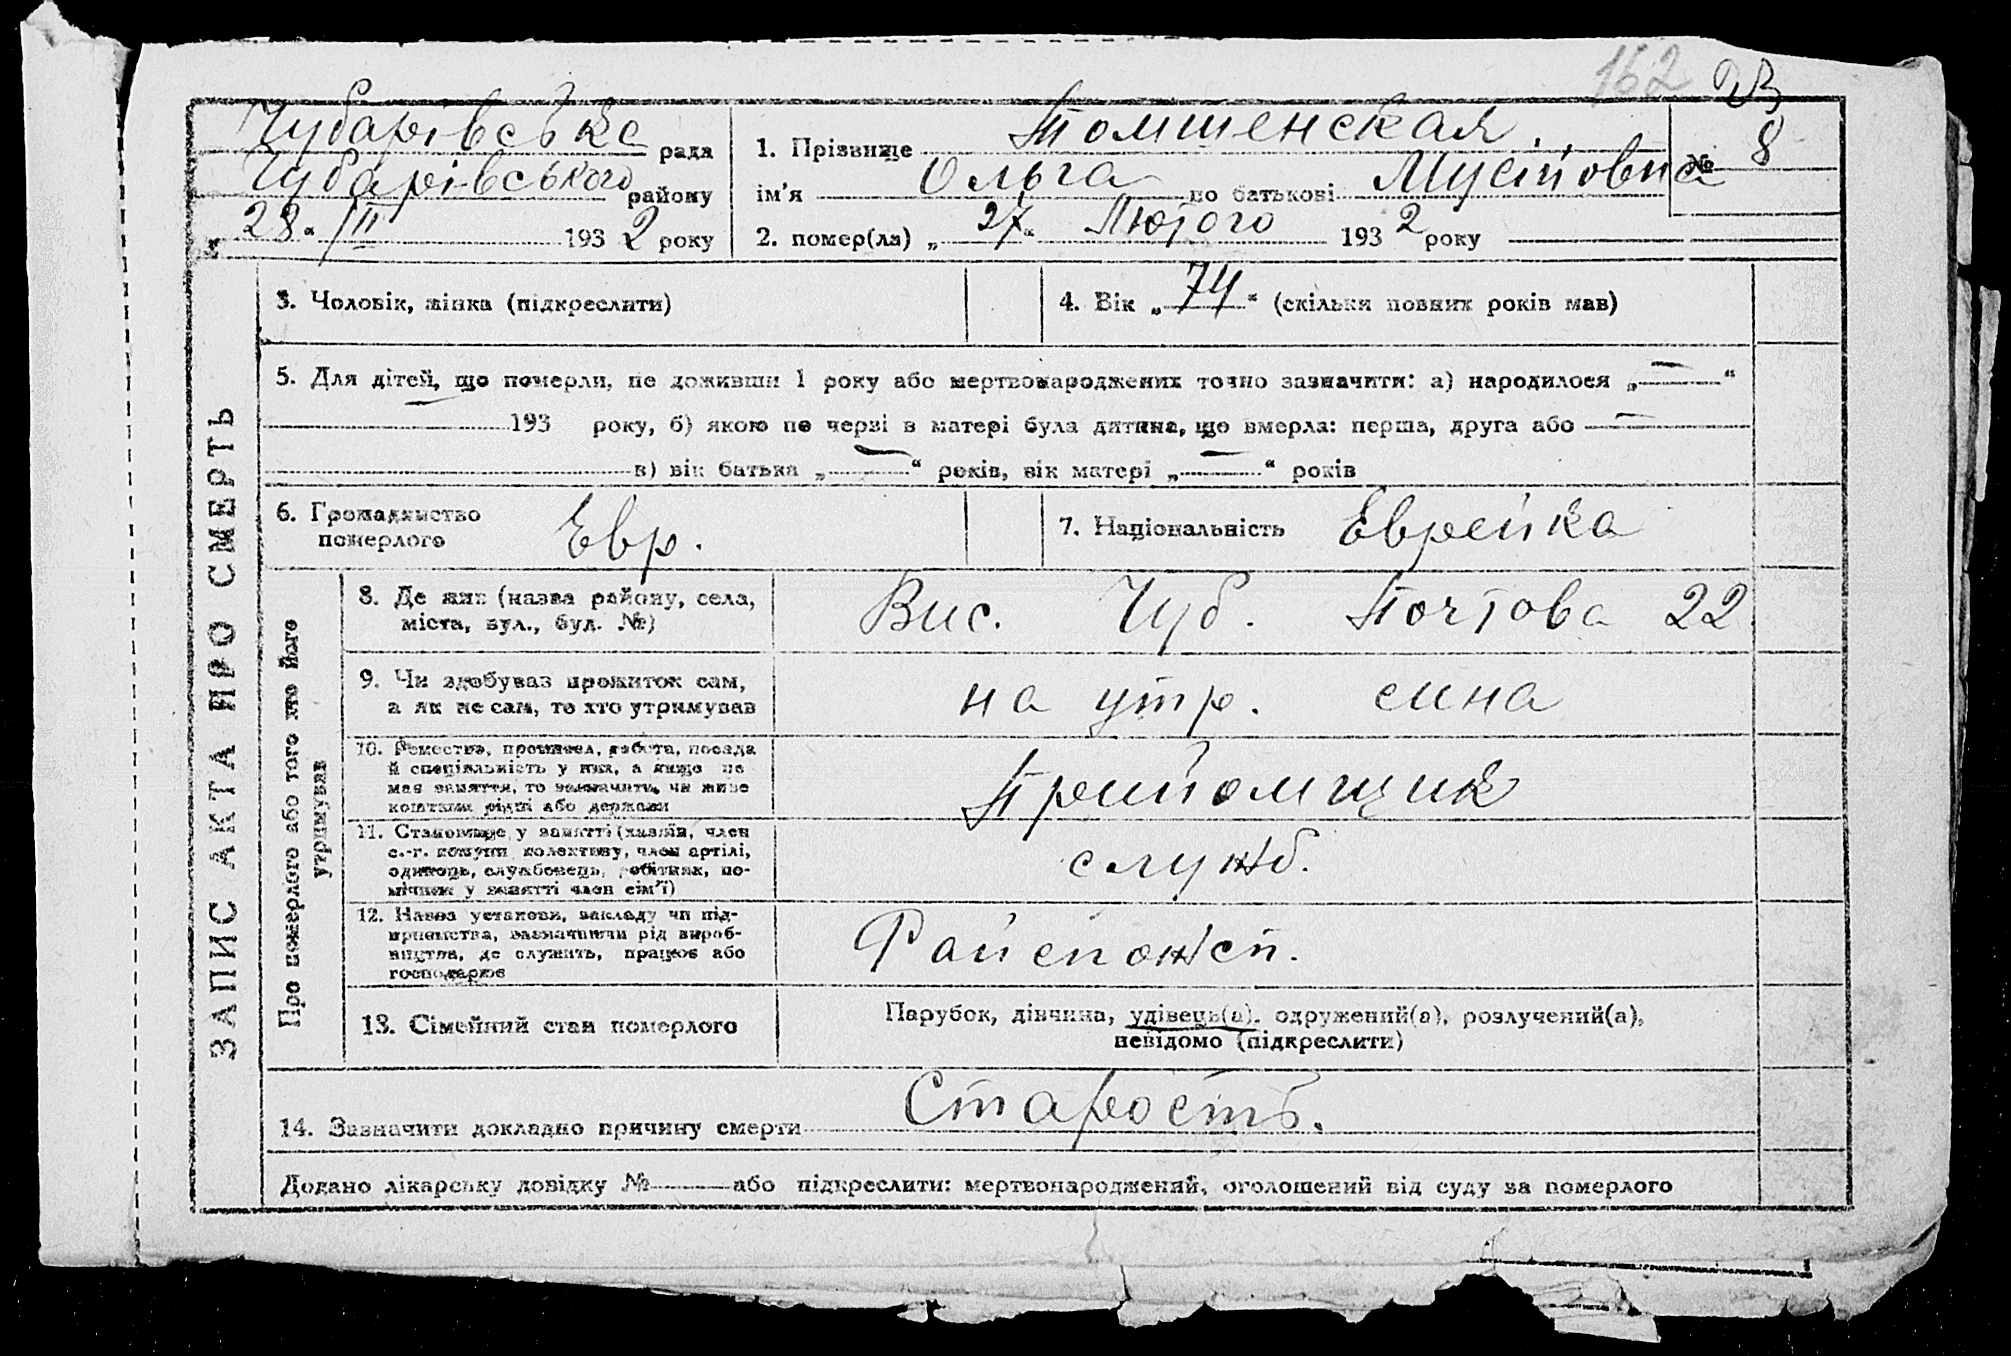 162 23
Чубарівська рада
Чубарівського району
„28“ /II 1932 року
1. Прізвище Томшенская
№ 8
ім'я Ольга по батькові Мусійовна
2. помер(ла) „27“ Лютого 1932 року
ЗАПИС АКТА ПРО СМЕРТЬ
3. Чоловік, жінка (підкреслити)
4. Вік „74“ (скільки повних років мав)
5. Для дітей, що померли, не доживши 1 року або мертвонароджених точно зазначити: а) народилося „—“
193 року, б) якою по черзі в матері була дитина, що вмерла: перша, друга або —
в) вік батька „—“ років, вік матері „—“ років
6. Громадянство померлого Євр.
7. Національність Еврейка
Про померлого або того хто його утримував
8. Де жив (назва району, села,
міста, вул., буд. №)
Вис. Чуб. Почтова 22
9. Чи здобував прожиток сам,
а як не сам, то хто утримував
на утр. сина
10. Ремество, промисел, робота, посада
й спеціяльність у них, а якщо не
мав заняття, то зазначити, чи живе
коштами рідні або держави
Прийомщик
11. Становище у занятті (хазяїн, член
с.-г. комуни колективу, член артілі,
одинець, службовець, робітник, по-
мічник у занятті член сім'ї)
служб.
12. Назва установи, закладу чи під-
приємства, зазначивши рід вироб-
ництва, де служить, працює або
господарює
Райспожсп.
13. Сімейний стан померлого
Парубок, дівчина, удівець(а), одружений(а), розлучений(а),
невідомо (підкреслити)
14. Зазначити докладно причину смерти Старость.
Додано лікарську довідку №— або підкреслити: мертвонароджений, оголошений від суду за померлого